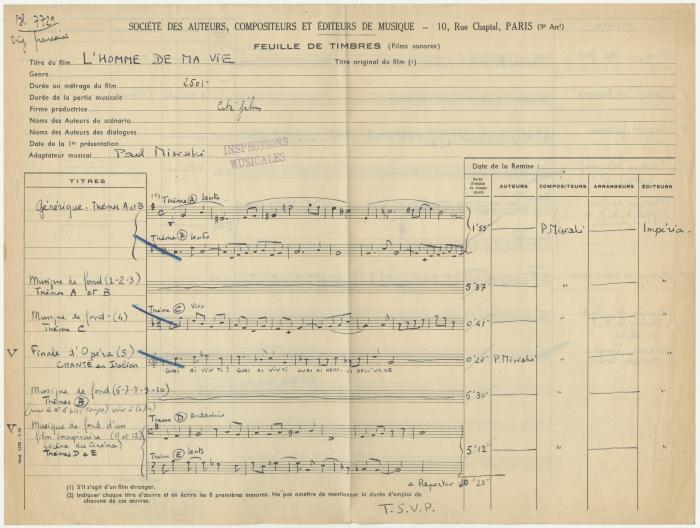 Bl. 7729
Orig. française
SOCIÉTÉ DES AUTEURS, COMPOSITEURS ET ÉDITEURS DE MUSIQUE -- 10, Rue Chaptal, PARIS (9e Arrt)
FEUILLE DE TIMBRES (Films sonores)
Titre du film L'HOMME DE MA VIE Titre original du film (1)
Genre
Durée ou métrage du film 2501-
Durée de la partie musicale
Firme productrice Cité films
Noms des Auteurs du scénario
Noms des Auteurs des dialogues
Date de la 1re présentation
Adaptateur musical Paul Misraki
INSPECTIONS
MUSICALES
Date de la Remise :
TITRES
Durée d'emploi de chaque œuvre
AUTEURS
COMPOSITEURS
ARRANGEURS
ÉDITEURS
Générique - Thèmes A et B
(2) Thème A lento
1'55" P. Misraki Impéria.
Thème B lento
Musique de fond (1-2-3)
Thèmes A et B
5'37 " "
Musique de fond - (4)
Thème C
Thème C Vivo
0'41" " "
V Finale d'Opéra (5)
CHANTÉ en Italien
GUAI AI VINTI! GUAI AI VINTI GUAI AI DELL'URBE
0'28" P. Misraki " "
Musique de fond (6-7-8-9-10)
Thèmes B
6'30" " "
V Musique de fond d'un
film imaginaire (11 et 12)
(scène du Cinéma)
Thèmes D et E
Thème D Andantino
5'12" " "
Thème E lento
à Reporter 20'23"
(1) S'il s'agit d'un film étranger.
(2) Indiquer chaque titre d'œuvre et en écrire les 8 premières mesures. Ne pas omettre de mentionner la durée d'emploi de
chacune de ces œuvres.
T.S.V.P.